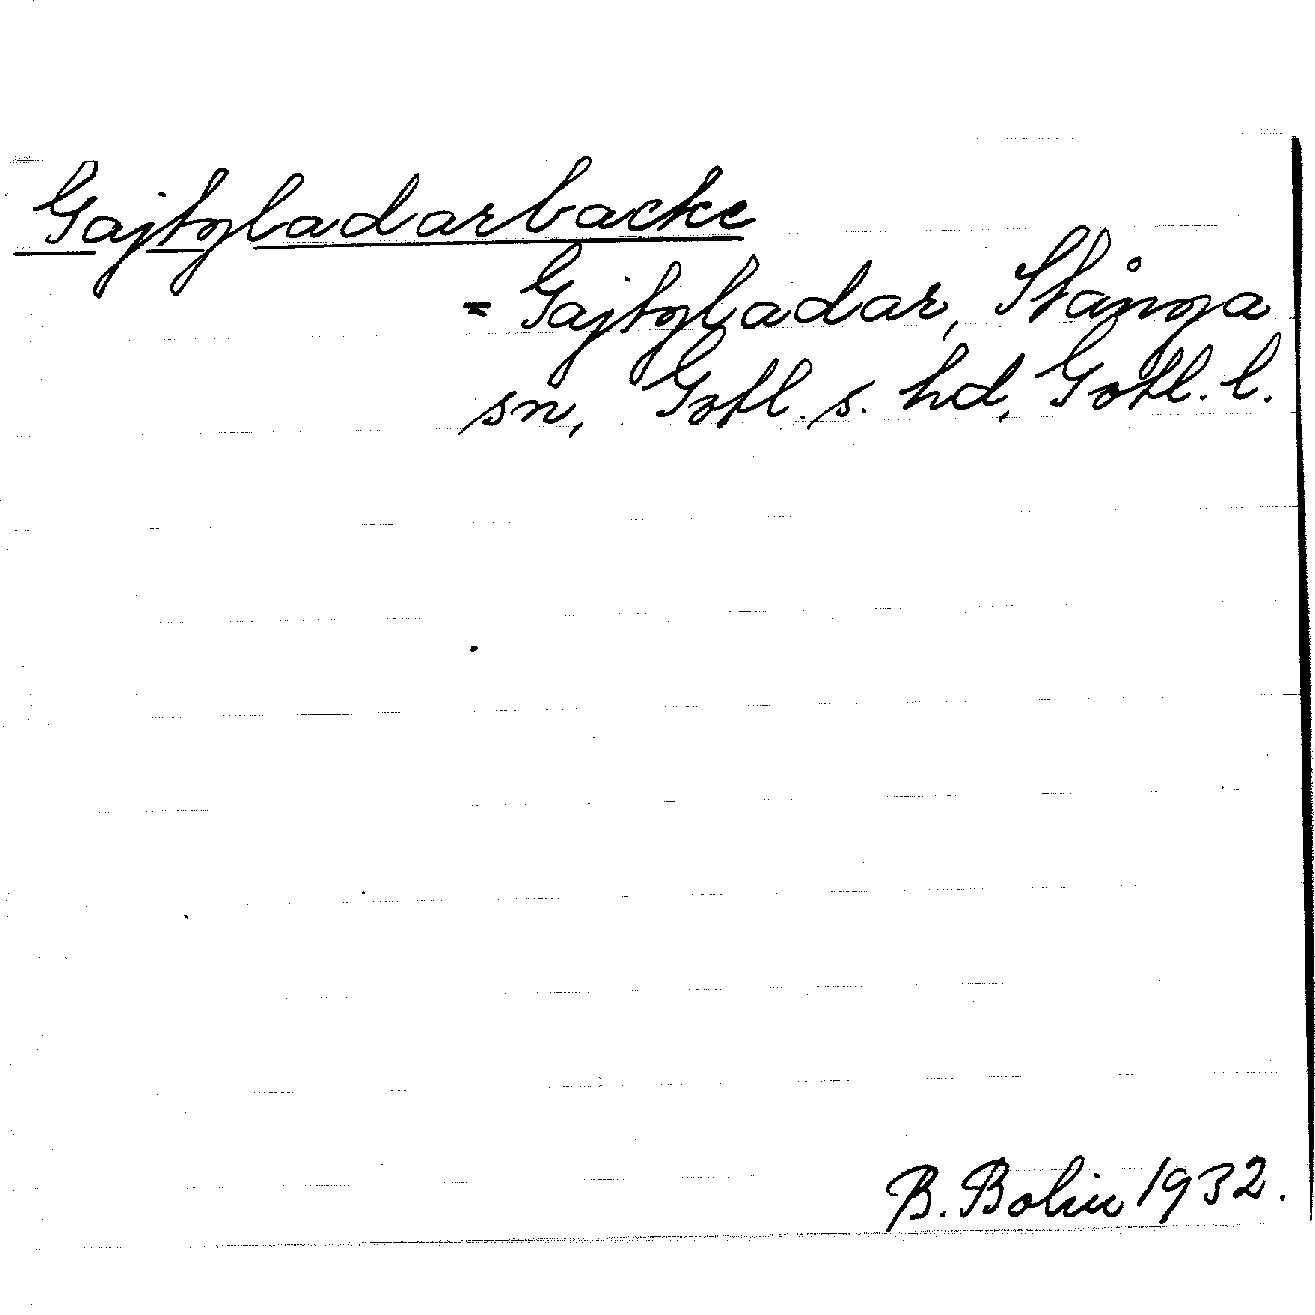 Gajtgladarbacke
= Gajtgladar, Stånga
sn, Gotl. s. hd, Gotl. l.
B. Bolin 1932.